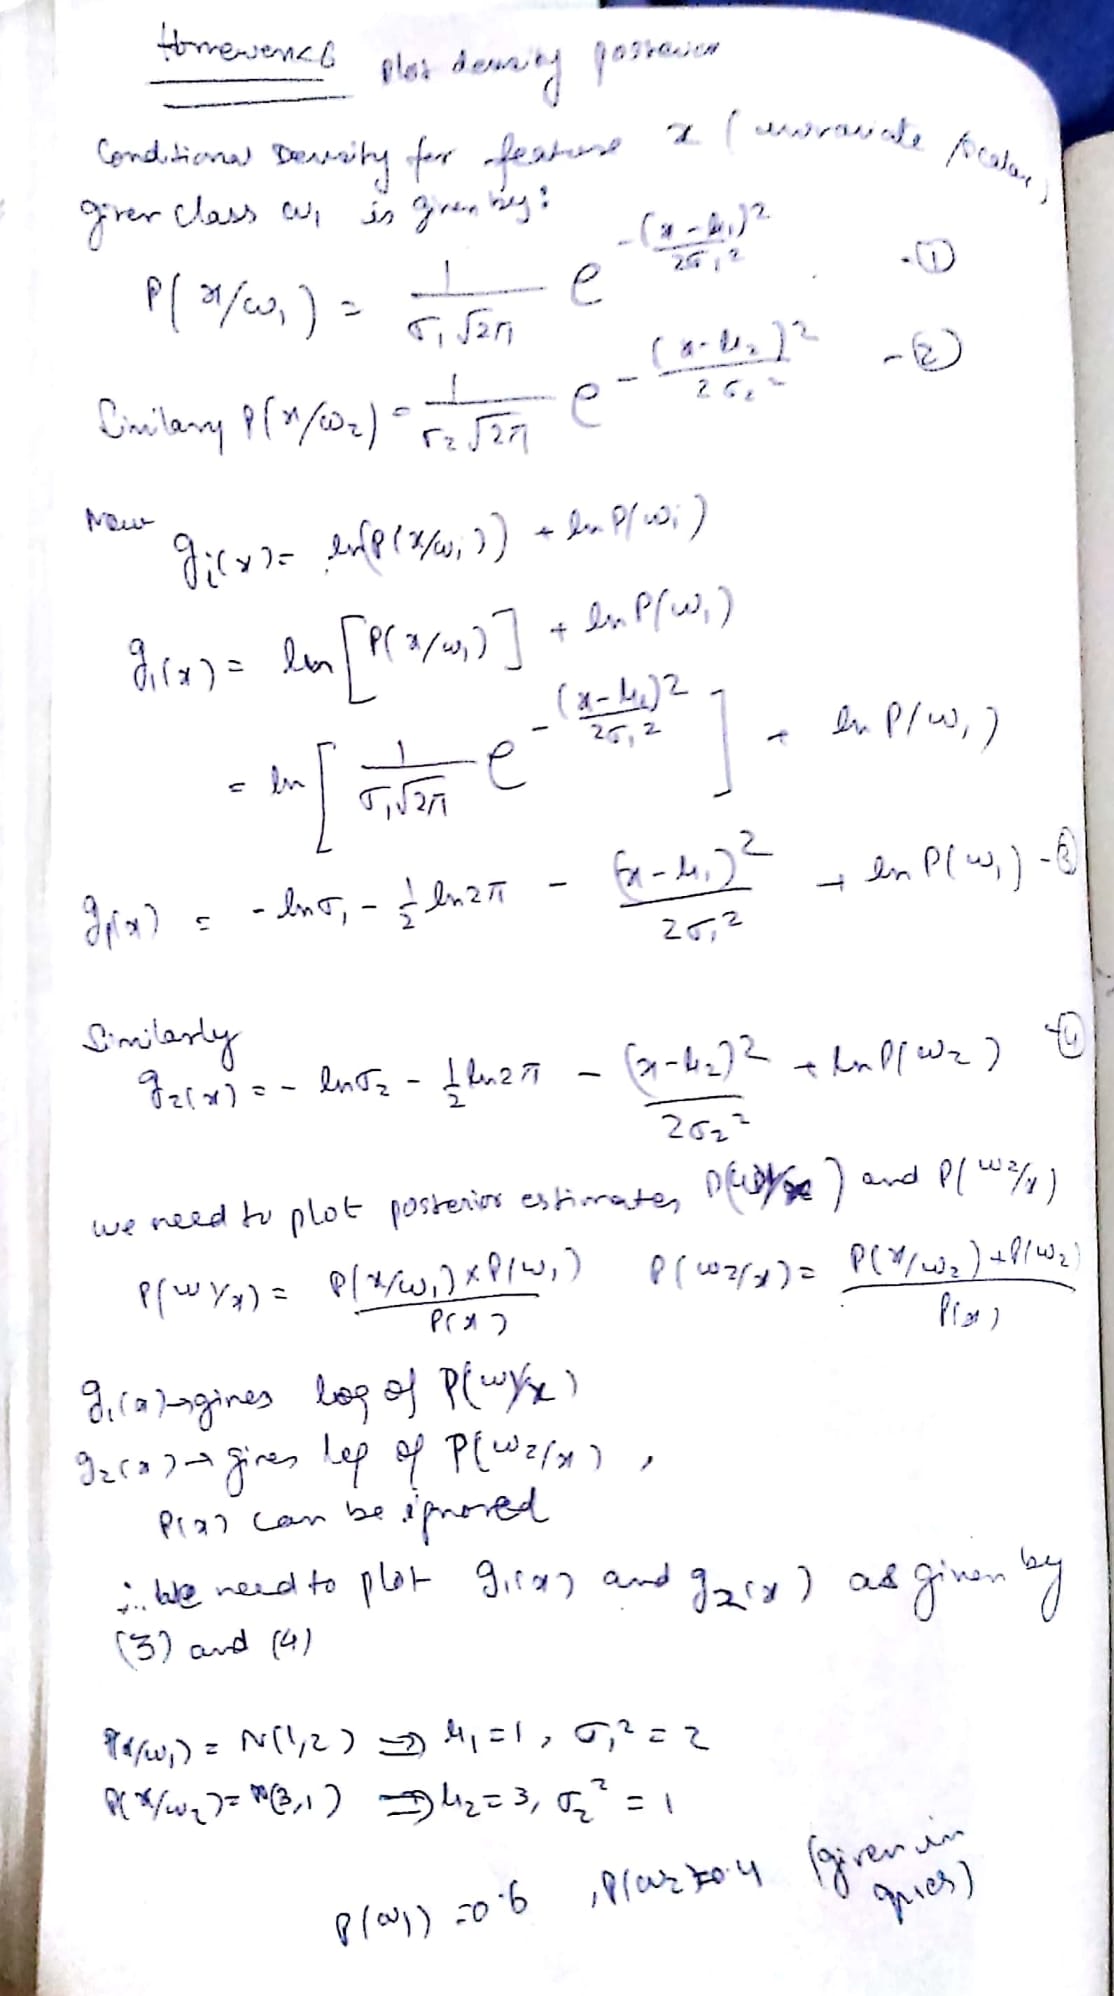 Homework 6 Plot density posterior
Conditional Density for feature x (univariate scalar)
given class ω₁ is given by:
P(x/ω₁) = 1/(σ₁√2π) e^(-(x-μ₁)²/2σ₁²) -①
Similarly P(x/ω₂) = 1/(σ₂√2π) e^(-(x-μ₂)²/2σ₂²) -②
Now
gᵢ(x) = ln(P(x/ωᵢ)) + ln P(ωᵢ)
g₁(x) = ln[P(x/ω₁)] + ln P(ω₁)
= ln[1/(σ₁√2π) e^(-(x-μ₁)²/2σ₁²)] + ln P(ω₁)
g₁(x) = -lnσ₁ - ½ ln2π - (x-μ₁)²/2σ₁² + ln P(ω₁) -③
Similarly
g₂(x) = -lnσ₂ - ½ ln2π - (x-μ₂)²/2σ₂² + ln P(ω₂) -④
we need to plot posterior estimates P(ω₁/x) and P(ω₂/x)
P(ω₁/x) = P(x/ω₁)×P(ω₁)/P(x) P(ω₂/x) = P(x/ω₂)+P(ω₂)/P(x)
g₁(x)→gives log of P(ω₁/x)
g₂(x)→gives log of P(ω₂/x),
P(x) can be ignored
∴ We need to plot g₁(x) and g₂(x) as given by
(3) and (4)
P(x/ω₁) = N(1,2) ⇒ μ₁=1, σ₁²=2
P(x/ω₂) = N(3,1) ⇒ μ₂=3, σ₂²=1
P(ω₁)=0.6, P(ω₂)=0.4 (given in
ques)